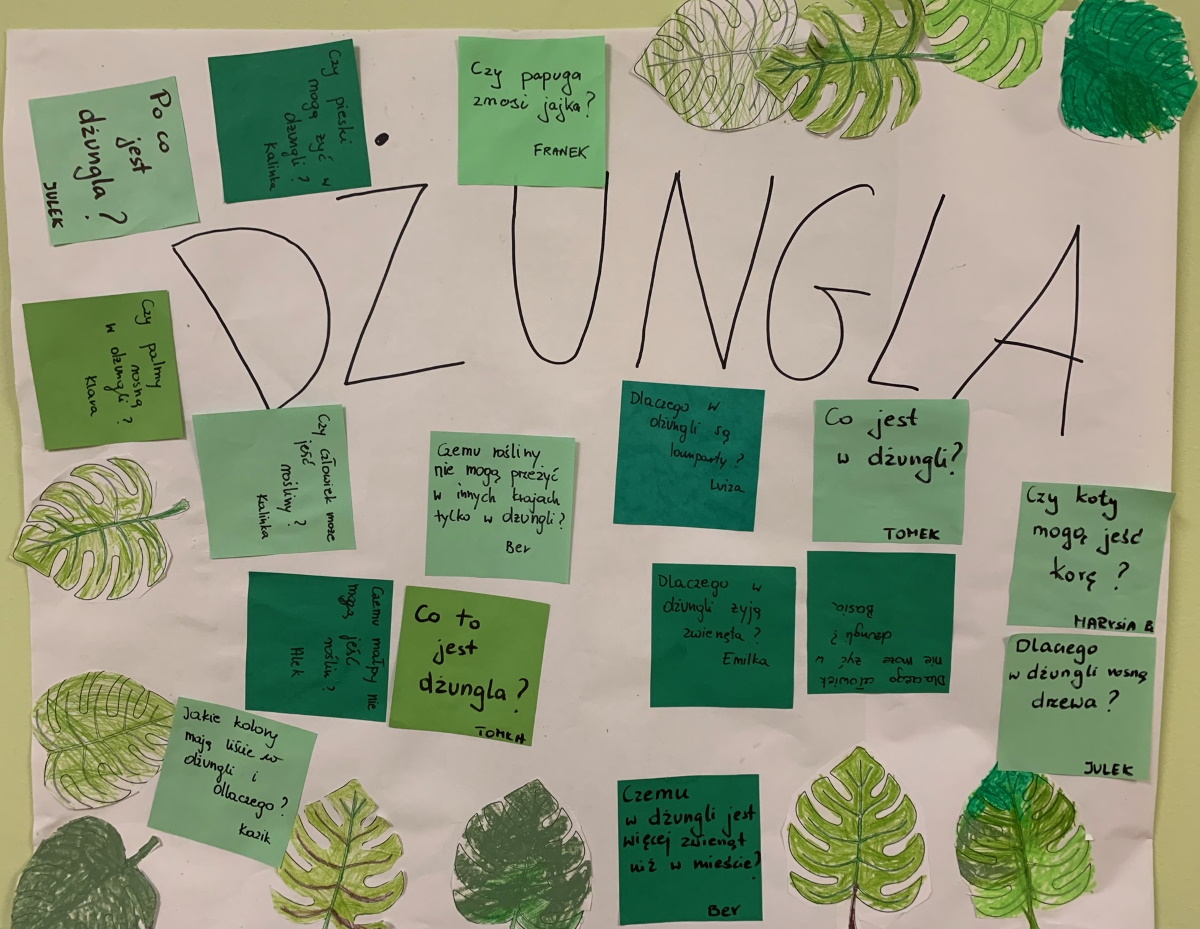 Po co
jest
dżungla?
JULEK
Czy pieski
mogą żyć w
dżungli?
Kalinka
Czy papuga
znosi jajka?
FRANEK
DŻUNGLA
Czy palmy
rosną
w dżungli?
Klara
Czy człowiek może
jeść
rośliny?
Kalinka
Czemu rośliny
nie mogą przeżyć
w innych krajach
tylko w dżungli?
Ber
Dlaczego w
dżungli są
lamparty?
Luiza
Co jest
w dżungli?
TOMEK
Czy koty
mogą jeść
korę?
MARYSIA B
Czemu małpy nie
mogą jeść
roślin?
Alek
Co to
jest
dżungla?
TOMEK
Dlaczego w
dżungli żyją
zwierzęta?
Emilka
Dlaczego człowiek
nie może żyć w
dżungli?
Basia
Dlaczego
w dżungli rosną
drzewa?
JULEK
Jakie kolory
mają liście w
dżungli i
dlaczego?
Kazik
Czemu
w dżungli jest
więcej zwierząt
niż w mieście?
Ber